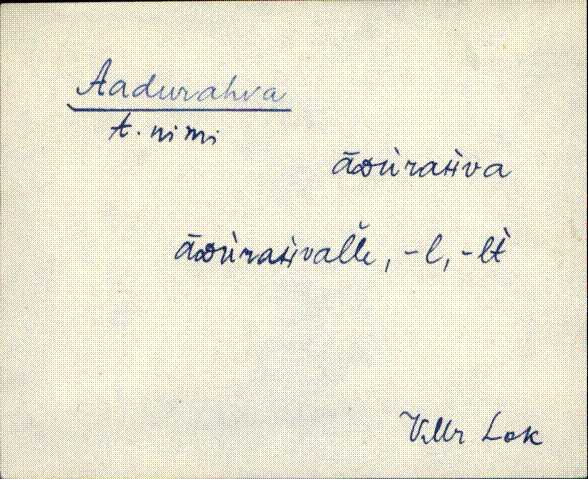 Aadurahva
t. nimi
āᴅùrahva
āᴅùrahvaľle, -l, -lt̀
V.Mr Lok